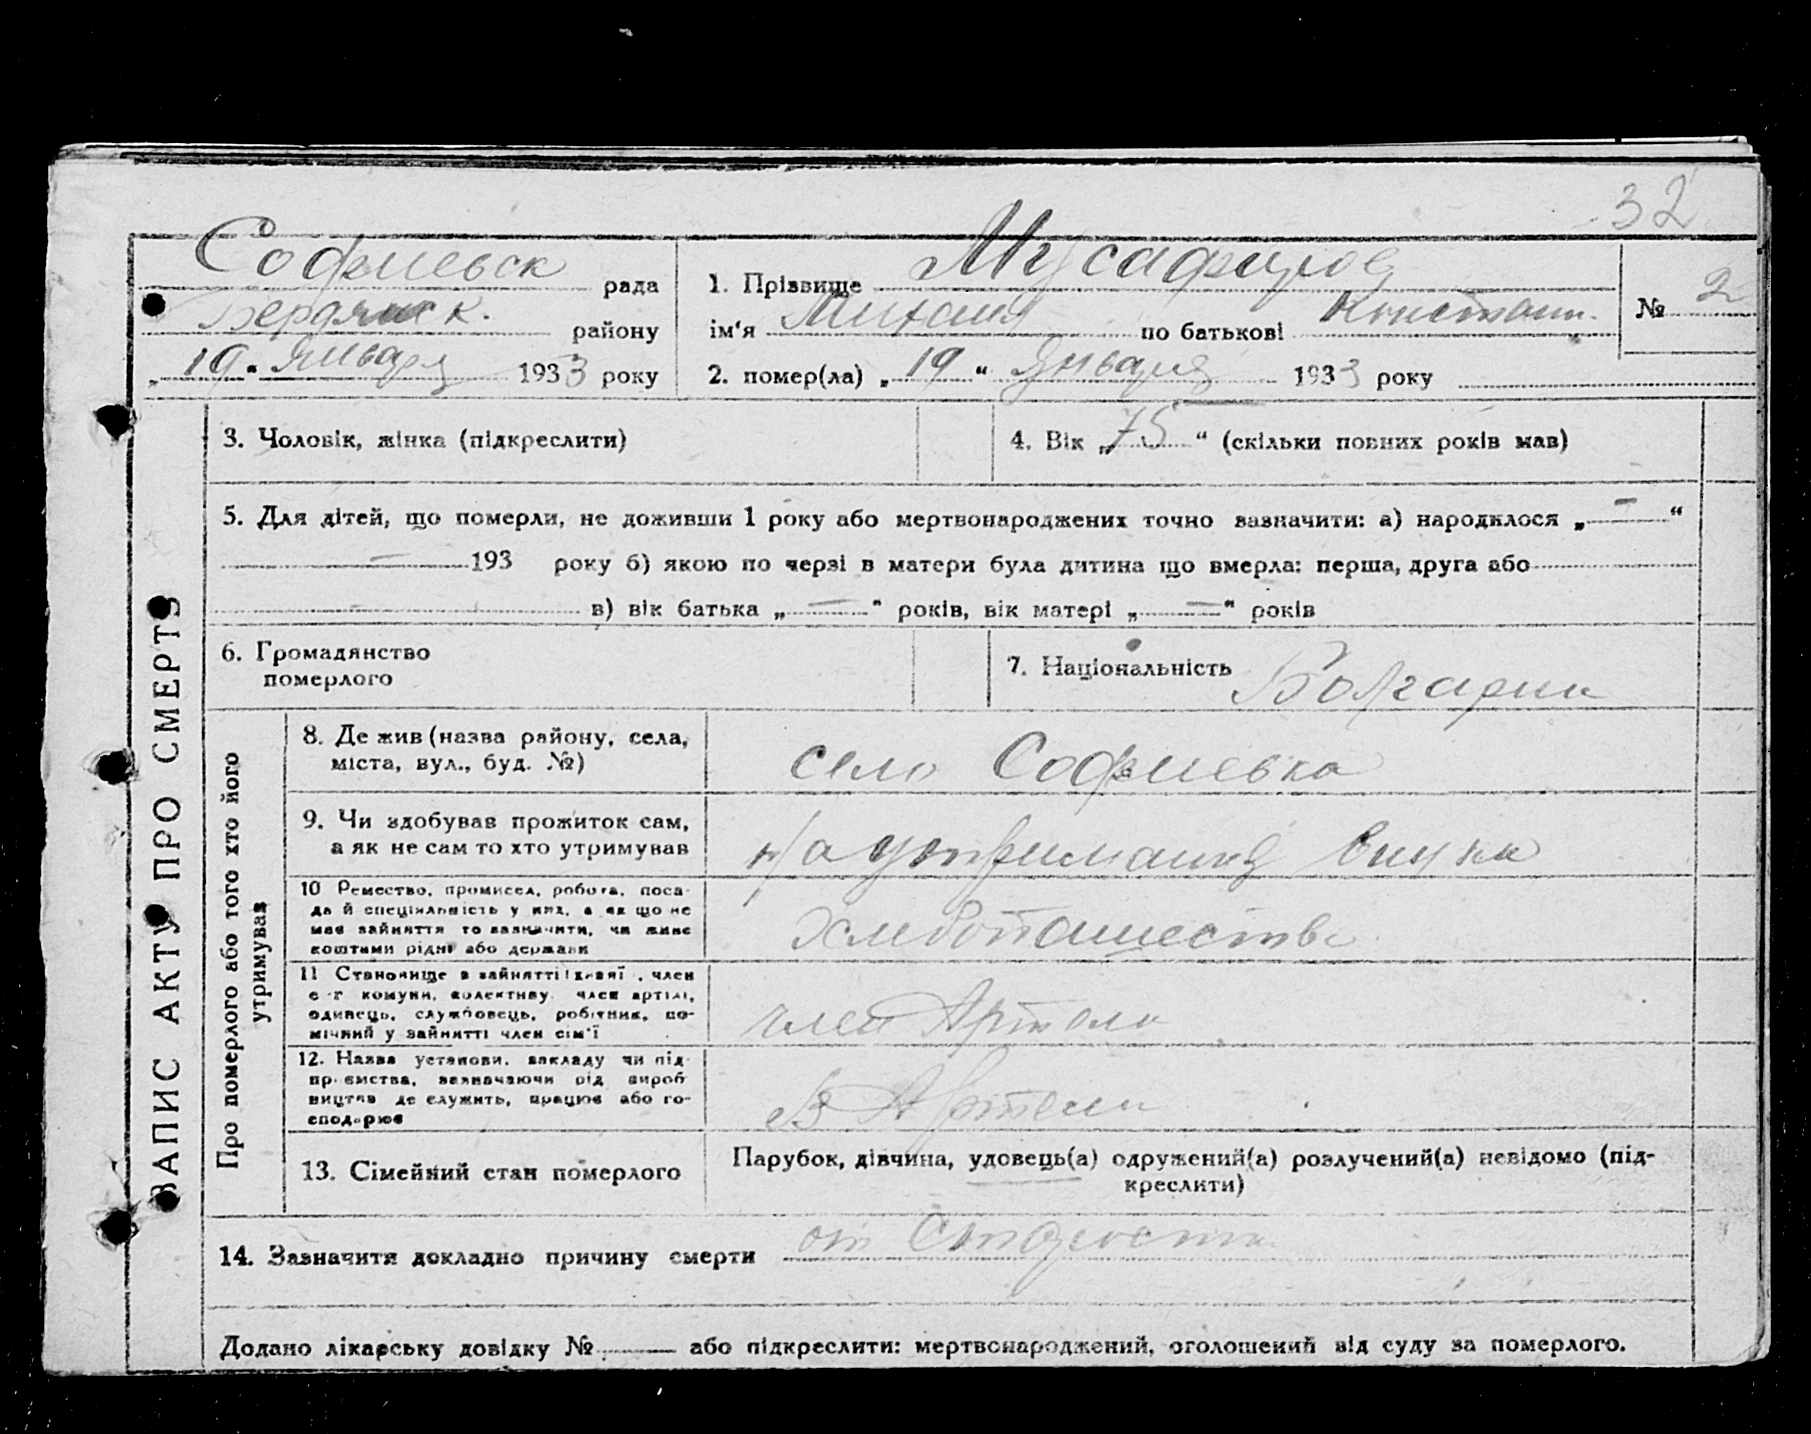 32
Софиевск рада
Бердянск. району
„19“ Января 1933 року
1. Прізвище Мусафиров
ім‘я Михаил по батькові Констант.
2. помер(ла) „19“ Января 1933 року
№ 2
ЗАПИС АКТУ ПРО СМЕРТЬ
3. Чоловік, жінка (підкреслити)
4. Вік „75“ (скільки повних років мав)
5. Для дітей, що померли, не доживши 1 року або мертвонароджених точно зазначити: а) народилося „—“
— 193 року б) якою по черзі в матери була дитина що вмерла: перша, друга або
— в) вік батька „—“ років, вік матері „—“ років
6. Громадянство
померлого
7. Національність Болгарин
Про померлого або того хто його
утримував
8. Де жив (назва району, села,
міста, вул., буд. №)
село Софиевка
9. Чи здобував прожиток сам,
а як не сам то хто утримував
на утримании внука
10 Ремество, промисел, робота, поса-
да й спеціяльність у них, а як що не
мав зайняття то зазначити, чи живе
коштами рідні або держави
Хлебопашество
11 Становище в зайнятті , член
с-г комуни, колективу член артілі,
одинець, службовець, робітник, по-
мічний у зайнятті член сім‘ї
член Артели
12. Назва установи, закладу чи під-
приємства, зазначаючи рід вироб-
ництва де служить, працює або го-
сподарює
В Артели
13. Сімейний стан померлого
Парубок, дівчина, удовець(а) одружений(а) розлучений(а) невідомо (під-
креслити)
14. Зазначити докладно причину смерти от Старости
Додано лікарську довідку № — або підкреслити: мертвонароджений, оголошений від суду за померлого.